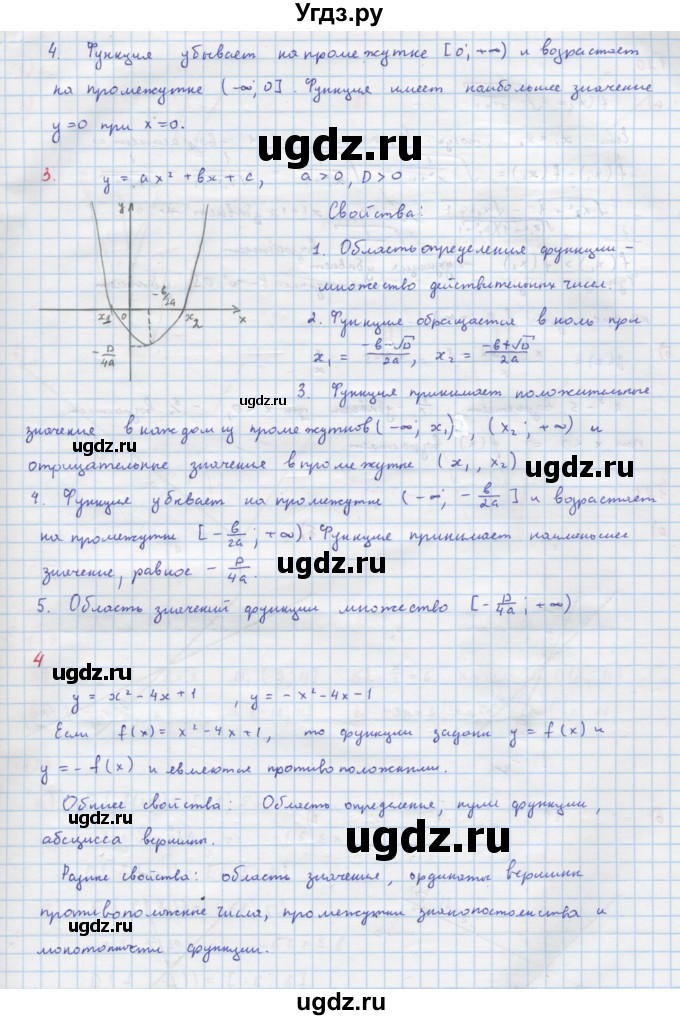 Угдз.ру
4. Функция убывает на промежутке [0; +∞) и возрастает
на промежутке (-∞; 0]. Функция имеет наибольшее значение
y=0 при x=0.
ugdz.ru
ugdz.ru
3. y = ax² + bx + c, a > 0, D > 0
y
Свойства:
1. Область определения функции –
множество действительных чисел.
-b/2a
x₁ 0 x₂ x
-D/4a
2. Функция обращается в ноль при
x₁ = (-b-√D)/2a, x₂ = (-b+√D)/2a
ugdz.ru
3. Функция принимает положительные
значение в каждом из промежутков (-∞; x₁), (x₂; +∞) и
ugdz.ru
отрицательные значение в промежутке (x₁, x₂)
ugdz.ru
4. Функция убывает на промежутке (-∞; -b/2a] и возрастает
на промежутке [-b/2a; +∞). Функция принимает наименьшее
значение, равное -D/4a.
ugdz.ru
5. Область значений функции множество [-D/4a; +∞)
4
ugdz.ru
y = x² - 4x + 1, y = -x² - 4x - 1
Если f(x) = x² - 4x + 1, то функции задани y = f(x) и
y = -f(x) и являются противоположними.
Общие свойства: Область определение, нули функции,
ugdz.ru
абсцисса вершины.
ugdz.ru
Разные свойства: область значение, ординаты вершини
противоположные числа, промежутки знакопостоянства и
монотонности функции.
ugdz.ru
ugdz.ru